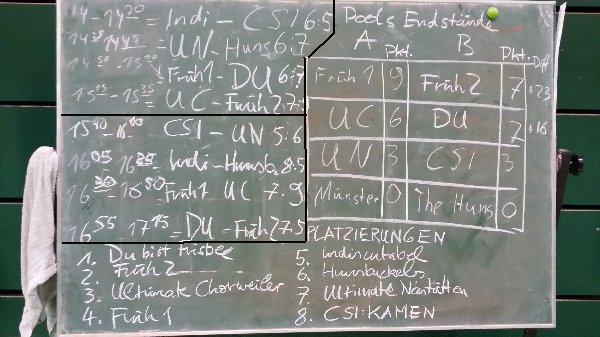 14 - 14 20 = Indi - CSI 6:5
14 25 14 45 = UN - Huns 6:7
14 50 - 15 10 Früh1 - DU 6:7
15 15 - 15 35 = UC - Früh2 7:
15 40 - 16 00 CSI - UN 5:6
16 05 16 25 Indi - Hunsb. 8:5
16 30 - 16 50 = Früh1 UC 7:9
16 55 - 17 15 = DU - Früh2 7:5
Pools Endstände
A Pkt. B Pkt. Diff
Früh 1 9 Früh2 7 +23
UC 6 DU 7 +16
UN 3 CSI 3
Münster 0 The Huns 0
PLATZIERUNGEN
1. Du bist Frisbee
2. Früh 2
3. Ultimate Chorweiler
4. Früh 1
5. Indisentabel
6. Hunsbuckels
7. Ultimate
8. CSI:KAMEN